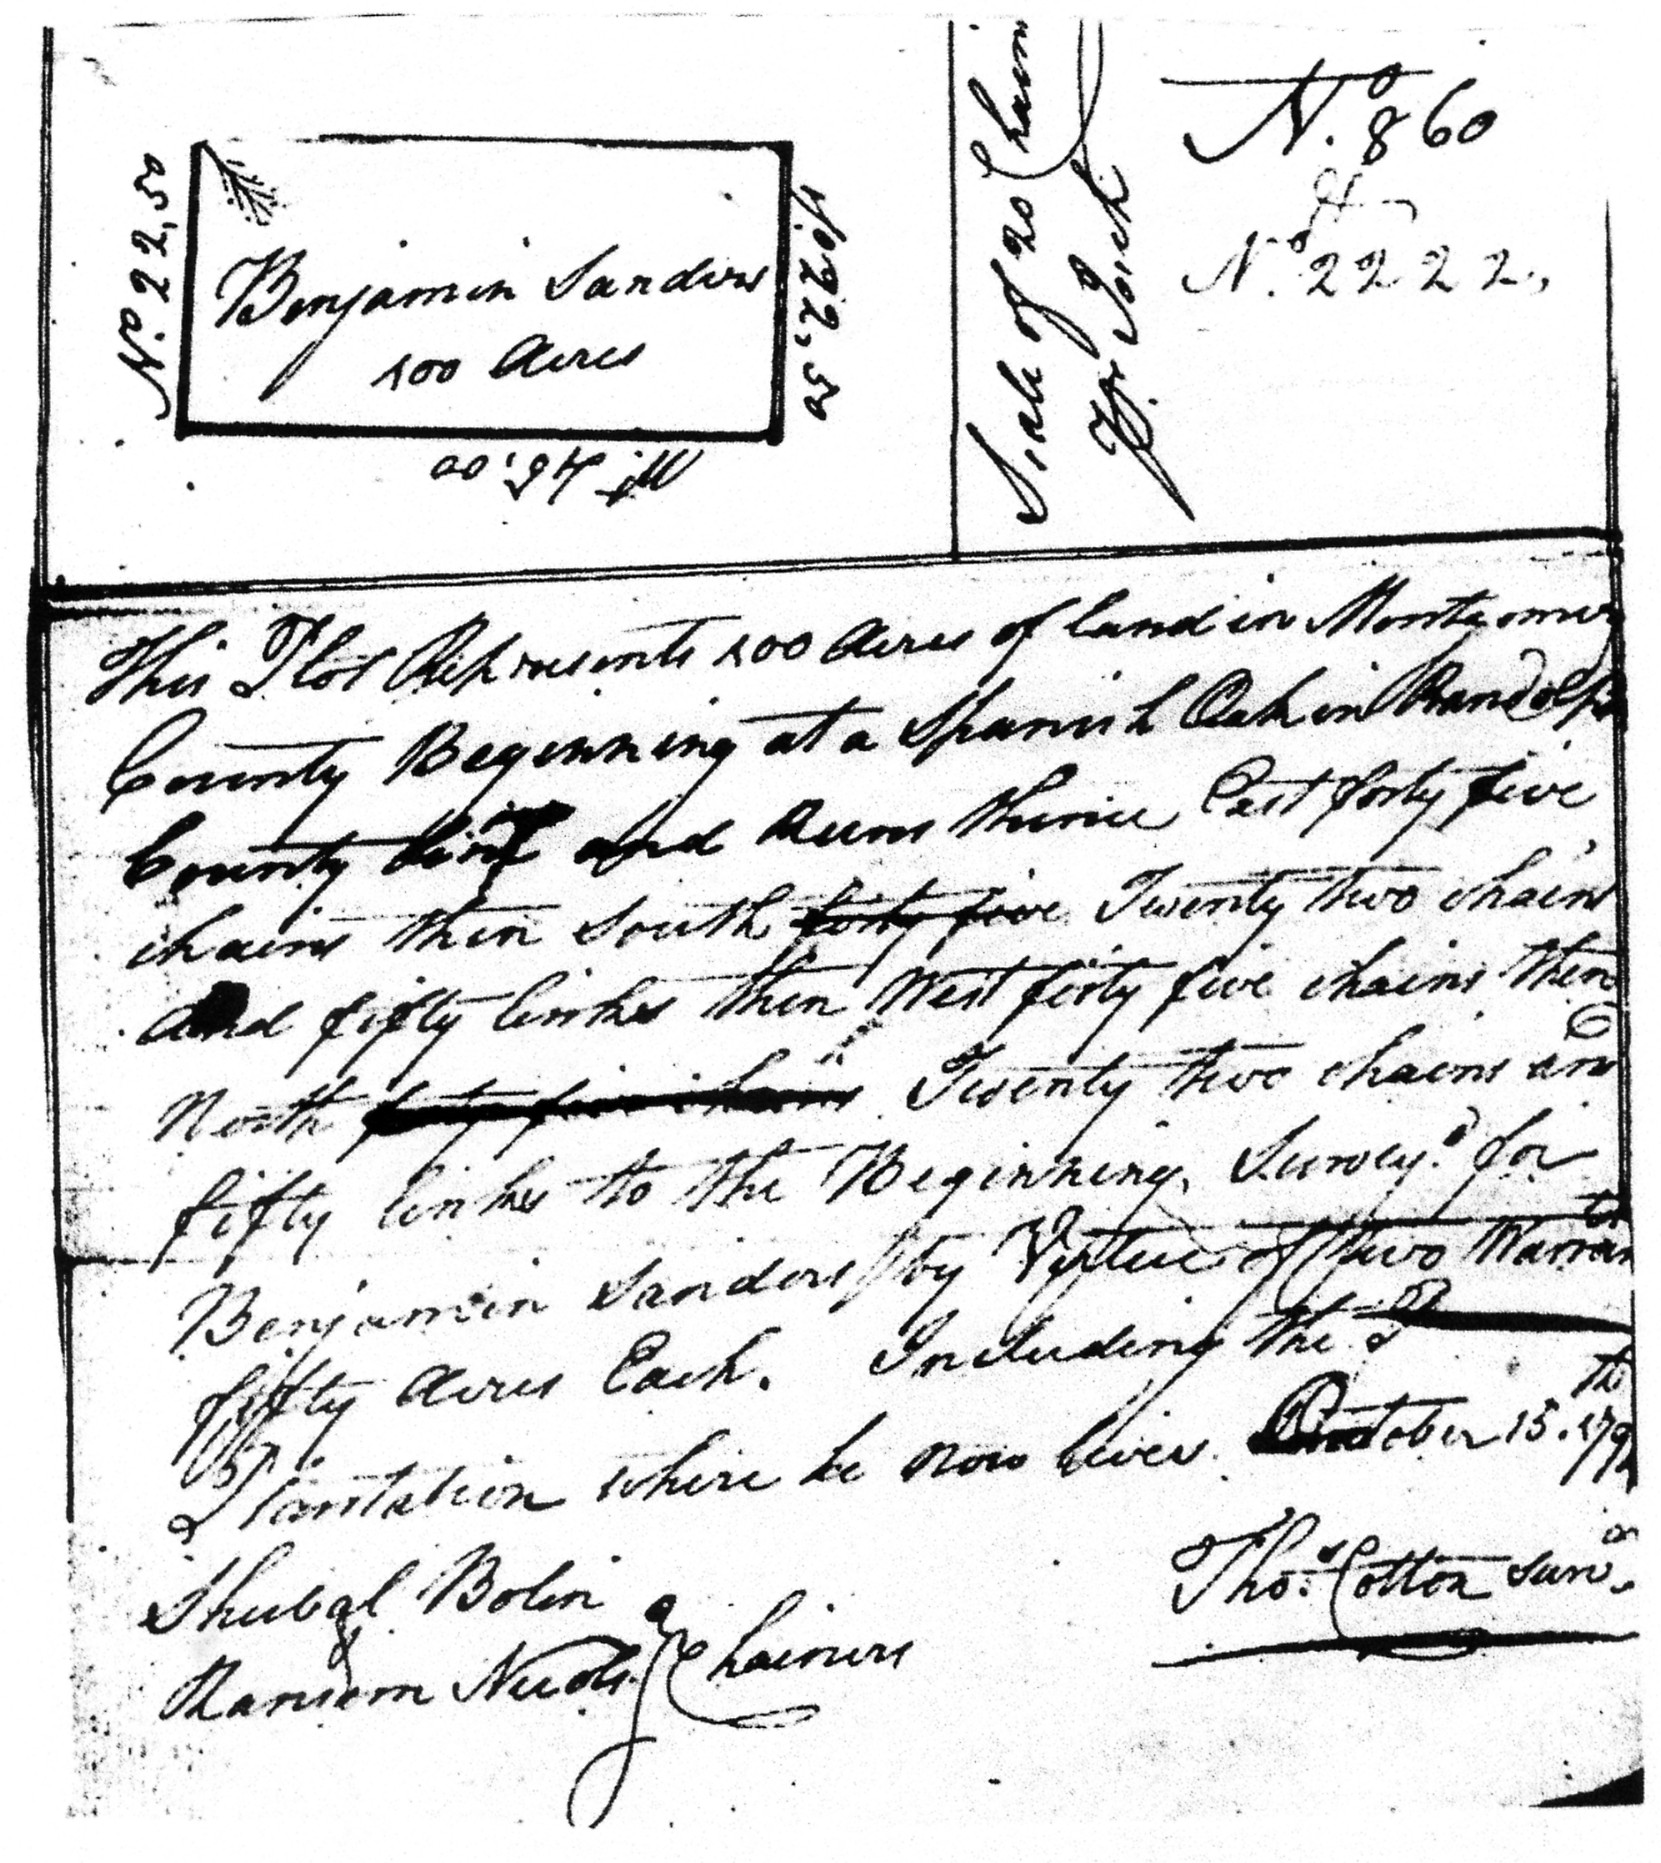 N.º 860
N.º 2222,
Scale of 20 Chains
pr. Inch
N.º 22,50
Benjamin Sanders
100 Acres
N.º 22,50
W. 45.00
This Plot Represents 100 Acres of land in Montgomery
County Beginning at a Spanish Oak in Randolph
County line and Runs thence East forty five
chains then South forty five Twenty two chains
And fifty links then West forty five chains then
North forty five chains Twenty two chains and
fifty links to the Beginning. Survey.d for
Benjamin Sanders by Virtue of two Warran ts
fifty Acres Each. Including the P
Plantation where he now lives. October 15.th 179
Shubal Bolin
Ransom Chainers
Tho.s Cotton Surv.or